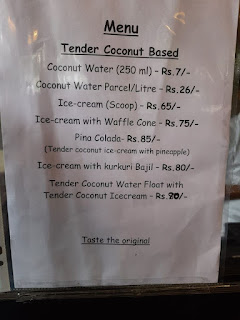 Menu
Tender Coconut Based
Coconut Water (250 ml) - Rs.7/-
Coconut Water Parcel/Litre - Rs.26/-
Ice-cream (Scoop) - Rs.65/-
Ice-cream with Waffle Cone - Rs.75/-
Pina Colada- Rs.85/-
(Tender coconut ice-cream with pineapple)
Ice-cream with kurkuri Bajil - Rs.80/-
Tender Coconut Water Float with
Tender Coconut Icecream - Rs.80/-
Taste the original